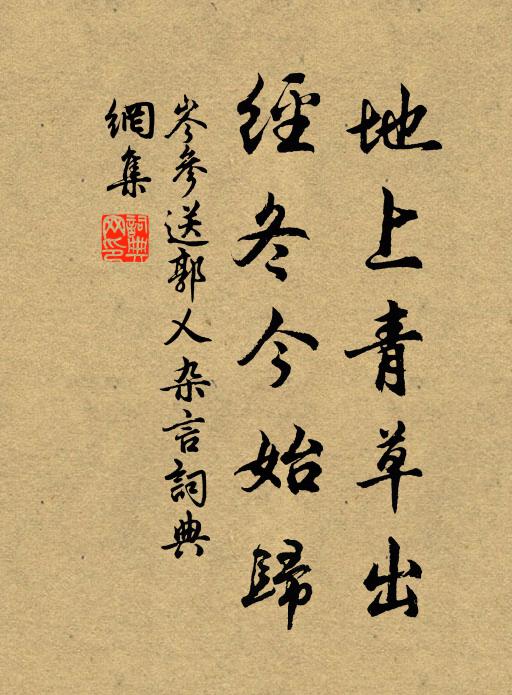 地上青草出
經冬今始歸
岑參送郭乂杂言詞典
網集
詞典網印